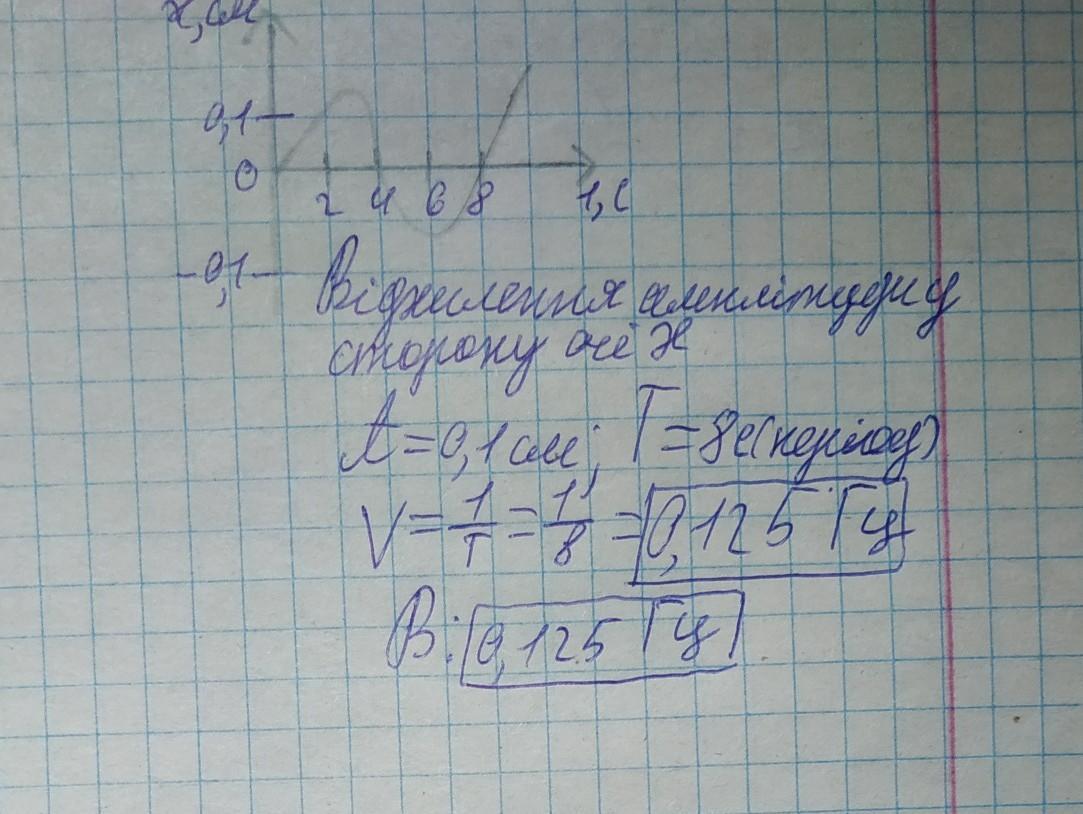 х, см
0,1
0
2 4 6 8 1, С
-0,1
Відхилення амплітуди у
сторону осі Х
A = 0,1 см; T = 8с (період)
V = 1/T = 1/8 = 0,125 Гц
В: 0,125 Гц